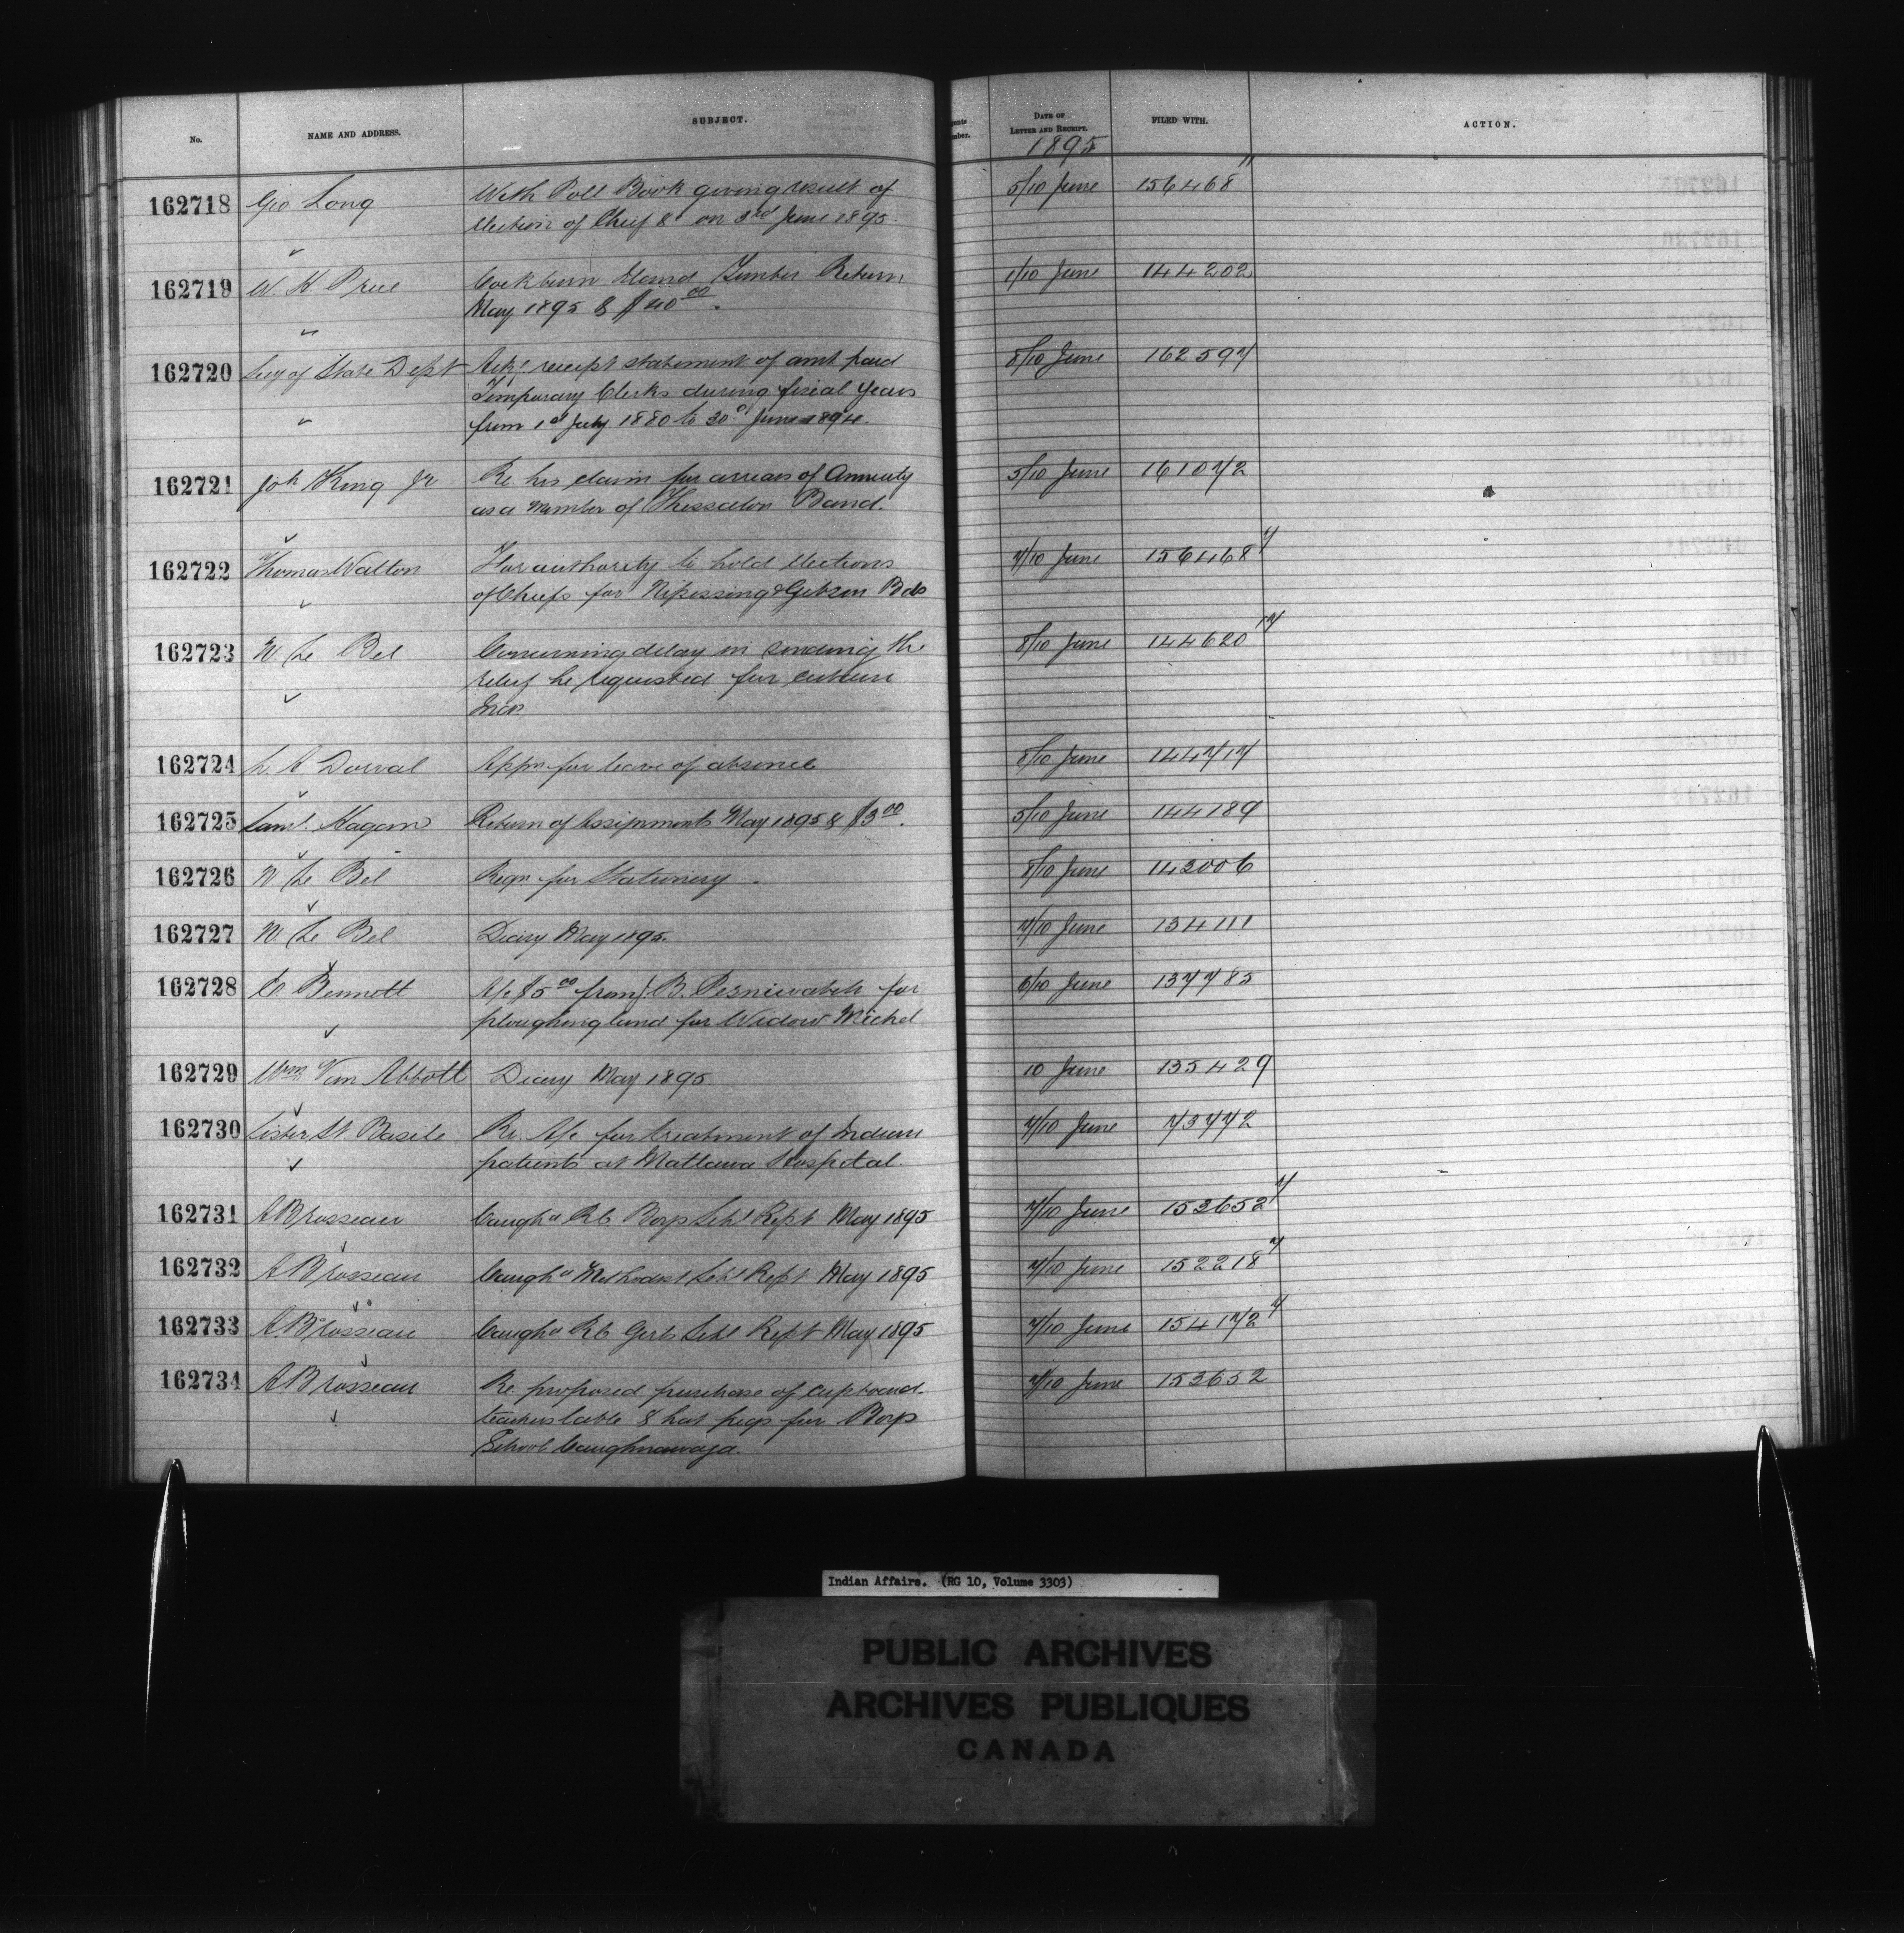 No. NAME AND ADDRESS. SUBJECT. DATE OF LETTER AND RECEIPT. FILED WITH. ACTION.
1895
162718 Geo Long With Poll Book giving result of 5/10 June 156468 11
election of Chief &c on 3rd June 1895.
162719 W. H. Price Cockburn Island Timber Return 1/10 June 144202
May 1895 & $40 00.
162720 Secy of State Dept Ackg receipt statement of amt paid 8/10 June 162597
Temporary Clerks during fiscal years
from 1st July 1880 to 30th June 1894.
162721 Joh King Jr Re his claim for arrears of Annuity 5/10 June 161072
as a member of Thessalon Band.
162722 Thomas Walton For authority to hold elections 7/10 June 156468 7
of Chiefs for Nipissing & Gibson Bds
162723 N Le Bel Concerning delay in sending the 8/10 June 144620 17
relief he requested for certain
Inds.
162724 L. A Dorval Appn for leave of absence 8/10 June 144717
162725 Saml. Hagan Return of Assignments May 1895 & $3 00. 5/10 June 144189
162726 N Le Bel Reqn for Stationery 8/10 June 143006
162727 N. Le Bel Diary May 1895. 7/10 June 134111
162728 C. Bennett A/c $5 00 from J. B. for 6/10 June 137785
ploughing land for Widow Michel
162729 Wm Van Abbott Diary May 1895 10 June 135429
162730 Sister St Basile Re. A/c for treatment of Indian 7/10 June 73772
patients at Mattawa Hospital.
162731 A Brosseau Caugha RC Boys Schl Rept May 1895 7/10 June 153652 7
162732 A Brosseau Caugha Methodist Schl Rept May 1895 7/10 June 152218 7
162733 A Brosseau Caugha RC Girls Schl Rept May 1895 7/10 June 154172 7
162734 A Brosseau Re proposed purchase of cupboard 7/10 June 153652
teachers table & hat pegs for Boys
School Caughnawaga.
Indian Affairs. (RG 10, Volume 3303)
PUBLIC ARCHIVES
ARCHIVES PUBLIQUES
CANADA